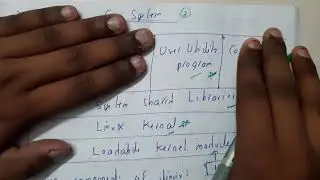 System ②
User Utility Co
program
System Shared Libraries
Linux Kernel
Loadable Kernel module
components of linux: